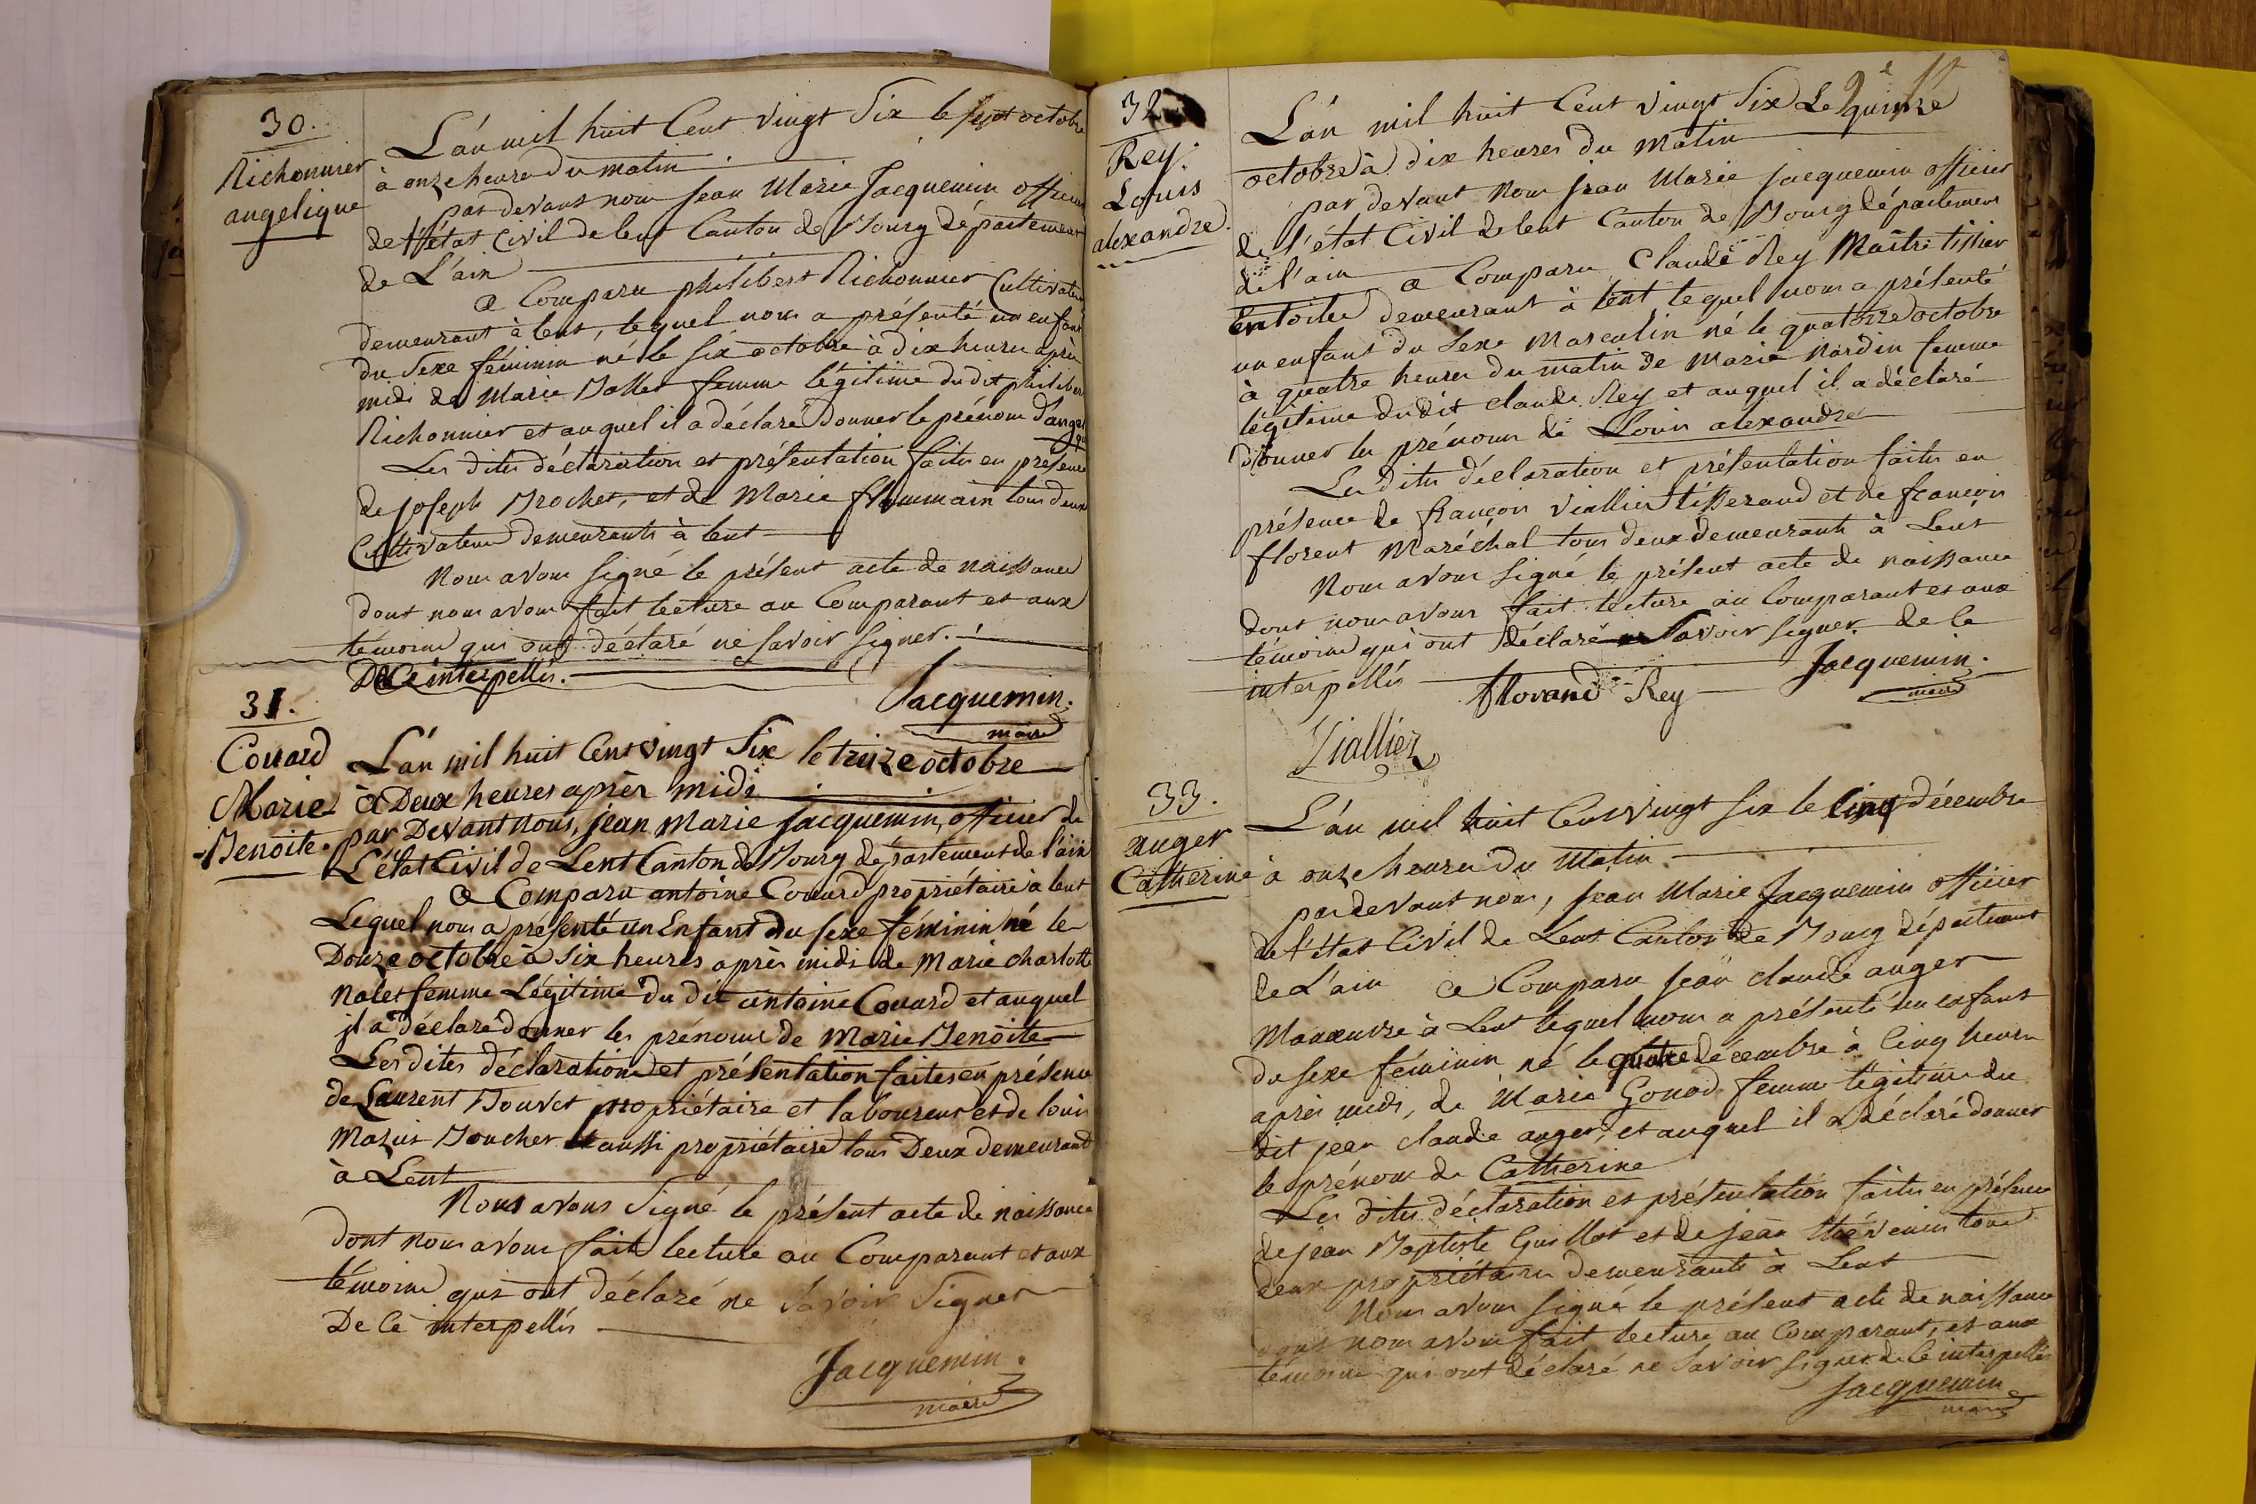 30.
Richonnier
angelique
L'án mil huit Cent vingt Six le sept octobre
à onze heure du matin
par devant nous Jean Marie Jacquemin officier
de l'état Civil de lent Canton de Bourg département
de L'ain
a Comparu philibert Richonnier Cultivateur
demeurant à lent, lequel nous a présenté un enfant
du Sexe féminin né le six octobre à dix heures après
midi de Marie femme légitime du dit philibert
Richonnier et auquel il a déclaré Donner le prénom d'angelique
Les dites déclaration et présentation faites en présence
de Joseph Brochet, et de Marie flammain tous deux
Cultivateurs demeurants à lent
Nous avons signé le présent acte de naissance
dont nous avons fait lecture au Comparant et aux
témoins qui ont déclaré ne savoir signer.
De Ce interpellés.
Jacquemin.
maire
31.
Couard
Marie
Benoite.
L'án mil huit Cent vingt Six le treize octobre
à Deux heures après midi
par Devant nous, jean marie jacquemin, officier de
L'état Civil de Lent Canton de Bourg département de l'ain
a Comparu antoine Couard propriétaire à lent
Lequel nous a présenté un Enfant du sexe féminin né le
Douze octobre à Six heures après midi de Marie charlotte
Nolet femme Légitime du dit antoine Couard et auquel
il a déclaré donner les prénoms de Marie Benoite
Les dites déclaration et présentation faites en présence
de Laurent Bouvet propriétaire et laboureur et de louis
Marius Boucher aussi propriétaire tous Deux demeurant
à Lent
Nous avons Signé le présent acte de naissance
dont nous avons fait lecture au Comparant et aux
témoins qui ont déclaré ne Savoir Signer
De Ce interpellés
Jacquemin.
maire
32
Rey.
Louis
alexandre.
L'án mil huit Cent vingt Six Le quinze
octobre à dix heures du matin
par devant nous jean Marie jacquemin officier
de l'état Civil de lent Canton de Bourg département
de l'ain a Comparu Claude Rey Maître tissier
en toile demeurant à lent lequel nous a présenté
un enfant du Sexe Masculin né le quatorze octobre
à quatre heures du matin de Marie Nardin femme
légitime du dit claude Rey et auquel il a déclaré
donner les prénoms de Louis alexandre
Les dites déclaration et présentation faites en
présence de françois Viallier tisserand et de françois
florent Maréchal tous deux demeurants à Lent
Nous avons signé le présent acte de naissance
dont nous avons fait lecture au Comparant et aux
témoins qui ont déclaré savoir signer. de Ce
interpellés
Jacquemin.
maire
florand Rey
Viallier
33.
auger
Catherine
L'án mil huit Cent vingt six le Cinq décembre
à onze heures du Matin
par devant nous, Jean Marie Jacquemin officier
de l'état Civil de Lent Canton de Bourg département
de L'ain a Comparu jean claude auger
Manœuvre à Lent lequel nous a présenté un enfant
du sexe féminin né le quatre décembre à Cinq heures
après midi, de Marie Gonod femme légitime du
dit jean claude auger, et auquel il a déclaré donner
le prénom de Catherine
Les dites déclaration et présentation faites en présence
de jean Baptiste Guillot et de jean thévenin tous
deux propriétaires demeurants à Lent
Nous avons signé le présent acte de naissance
dont nous avons fait lecture au Comparant, et aux
témoins qui ont déclaré ne savoir signer de Ce interpellés
Jacquemin
maire